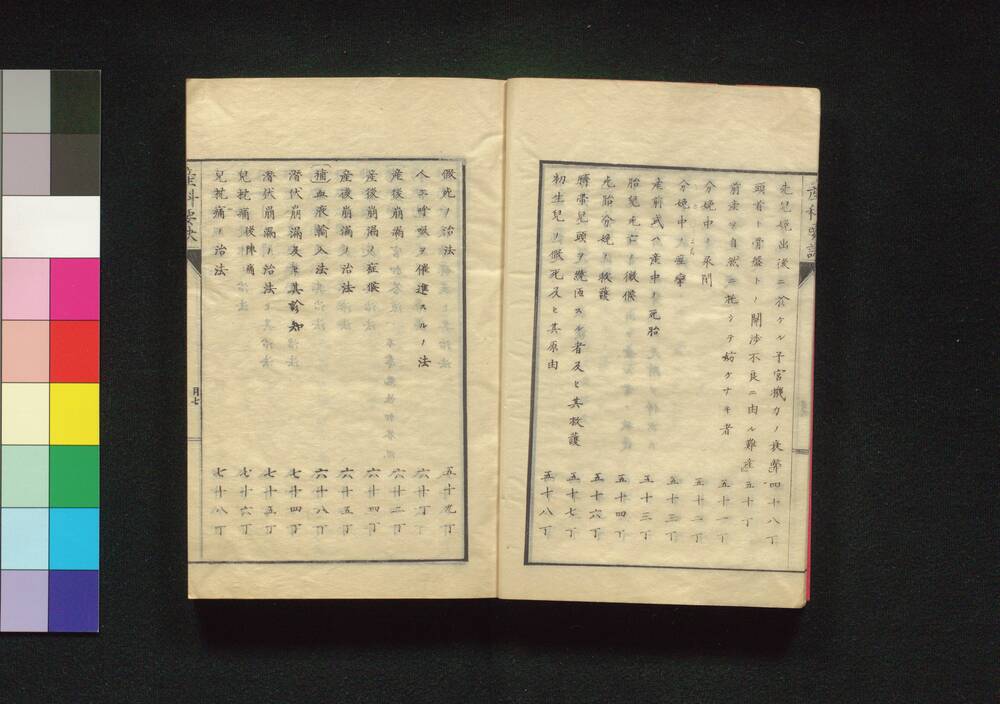 産科要訣
児娩出後ニ於ケル子宮機力ノ衰弊 四十八丁
頭首ト骨盤トノ関渉不良ニ由ル難産 五十丁
前条ヲ自然ニ托シテ妨ゲナキ者 五十一丁
分娩中ノ氷罔 五十二丁
分娩中ノ痙攣 五十三丁
産前或ハ産中ノ死胎 五十三丁
胎児死亡ノ徴候 五十四丁
死胎分娩ノ救護 五十六丁
臍帯児頭ヲ繞匝スル者及ヒ其救護 五十七丁
初生児ノ假死及ヒ其原由 五十八丁
假死ノ治法 五十九丁
人工呼吸ヲ催進スルノ法 六十丁
産後崩漏 六十二丁
産後崩漏ノ症候 六十四丁
産後崩漏ノ治法 六十五丁
補血液輸入法 六十八丁
潜伏崩漏及ヒ其診知 七十四丁
潜伏崩漏ノ治法 七十五丁
児枕痛後陣痛 七十六丁
児枕痛ノ治法 七十八丁
産科要訣
目七